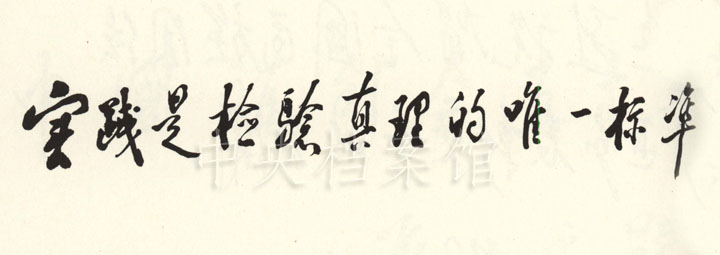 实践是检验真理的唯一标准
中央档案馆